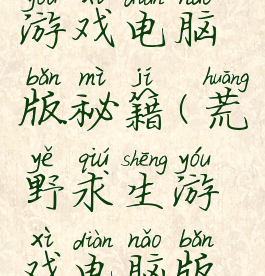 游戏电脑
bǎn mì jí huāng
版秘籍(荒
yě qiú shēng yóu
野求生游
xì diàn nǎo bǎn
戏电脑版